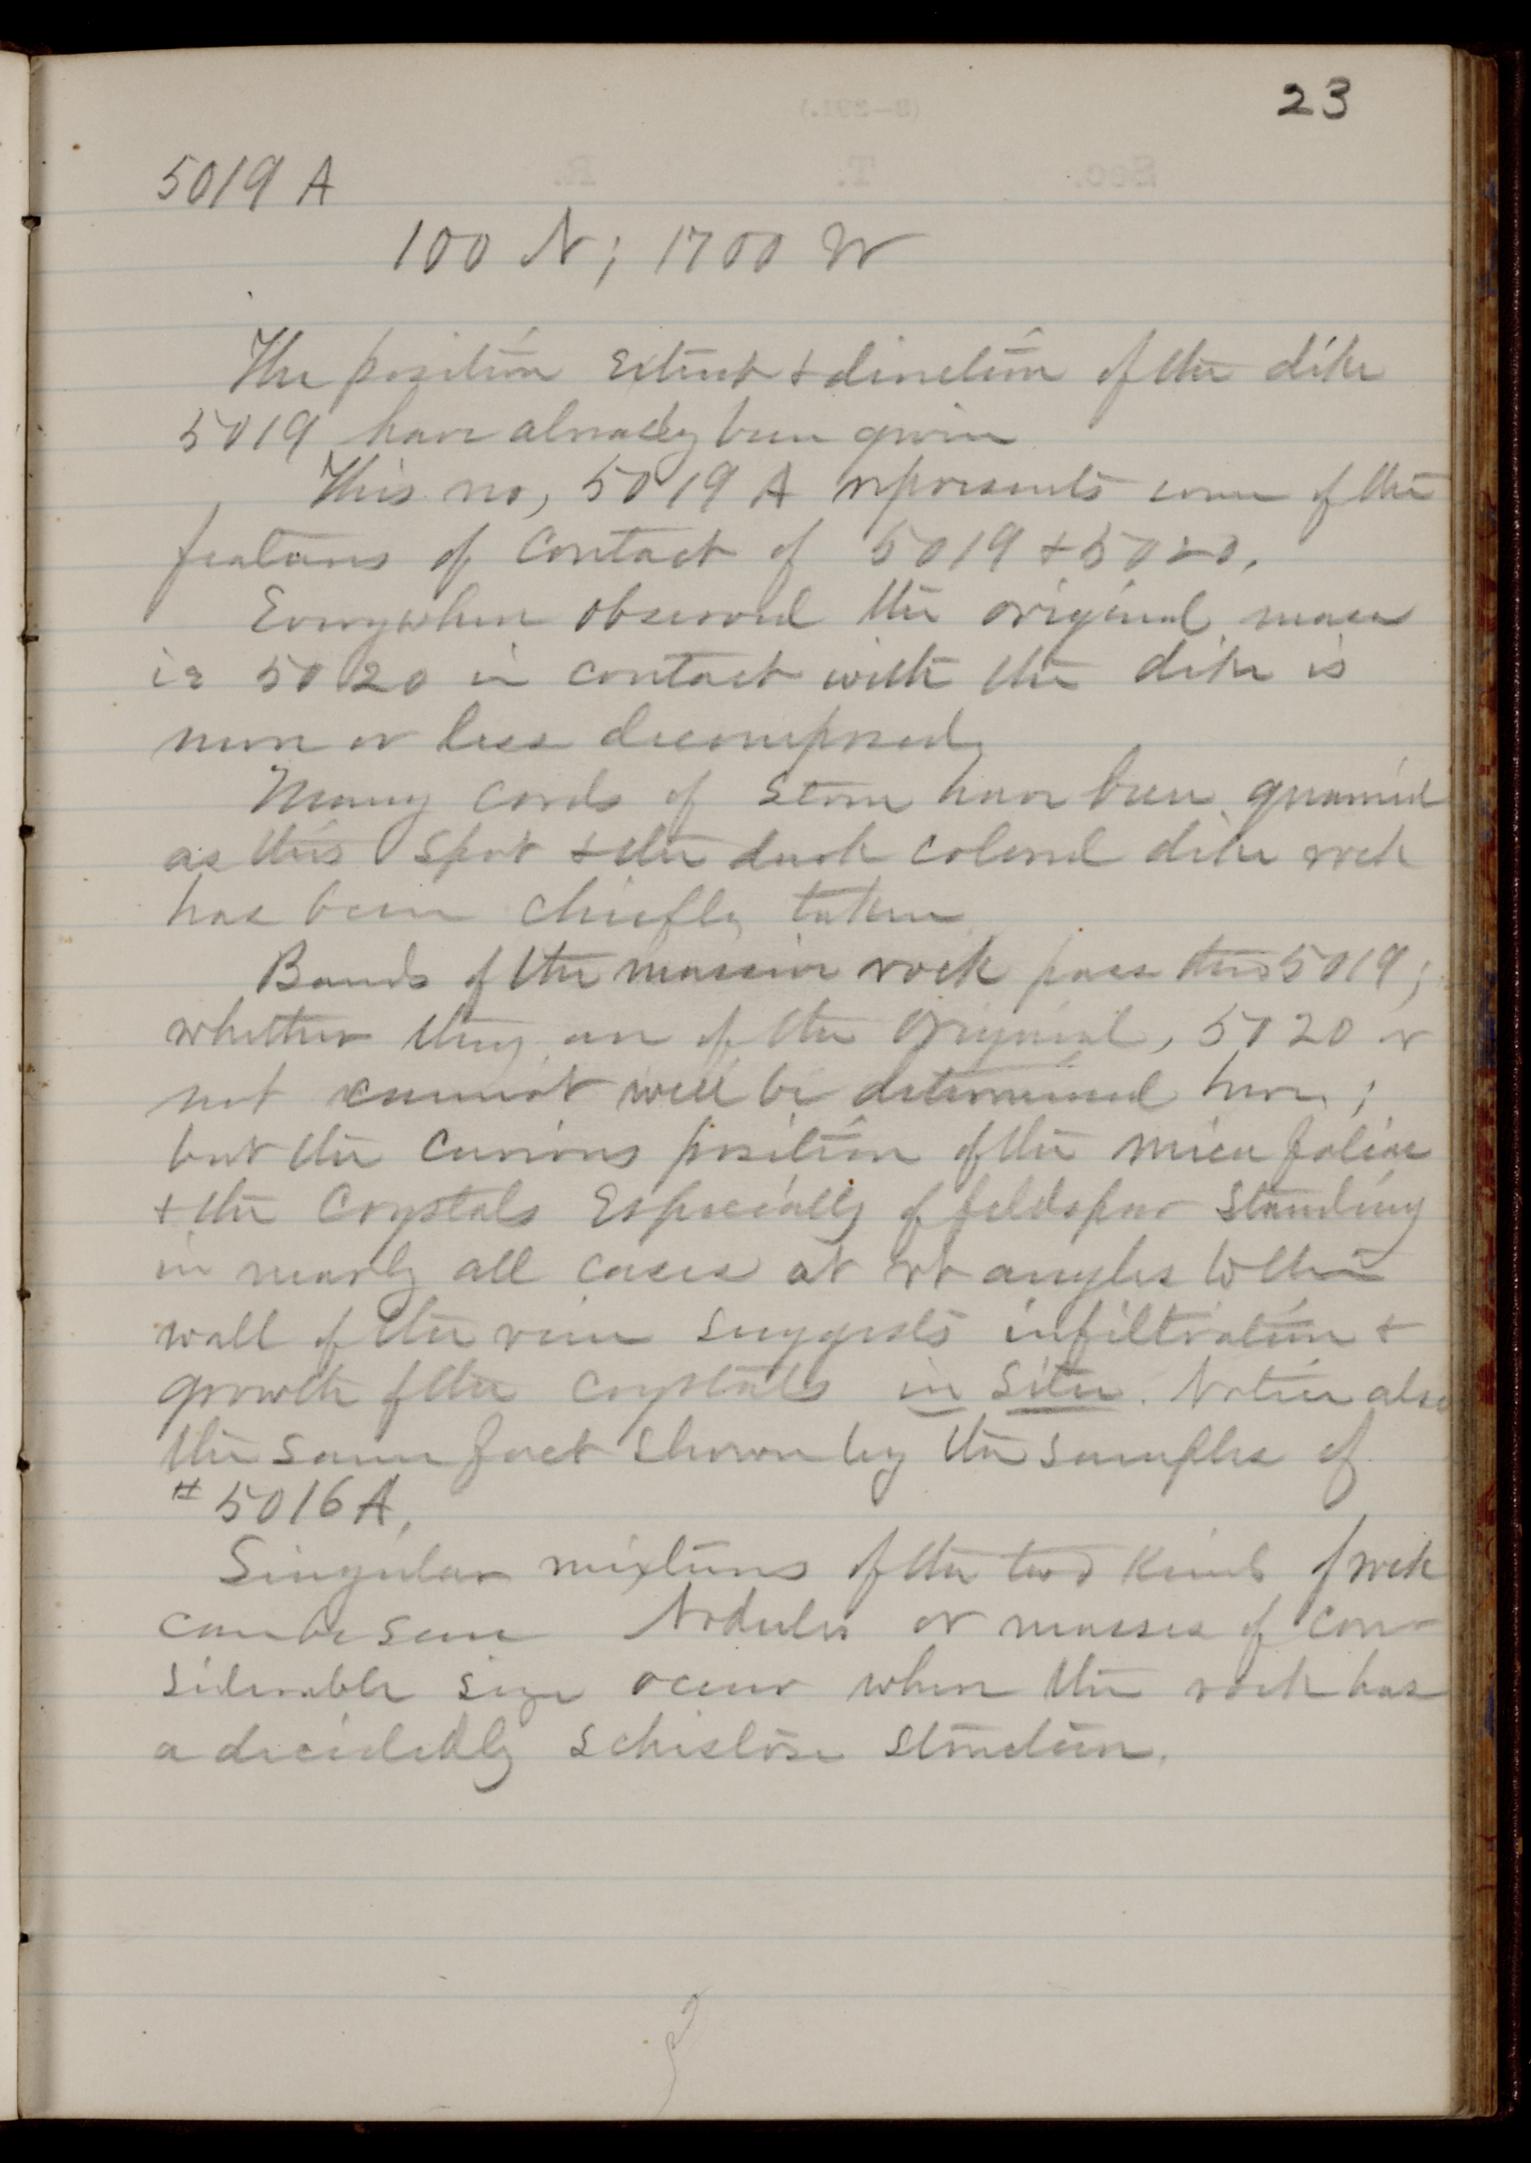 23
5019 A
100 N; 1700 W
The position extent & direction of the dike
5019 have already been given
This no, 5019 A represents some of the
features of contact of 5019 & 5020.
Everywhere observed the original mass
ie 5020 in contact with the dike is
more or less decomposed,
Many cords of stone have been quarried
as this spot & the dark colored dike rock
has been chiefly taken
Bands of the massive rock pass thro 5019;
whether they are of the original, 5020 or
not cannot well be determined here;
but the curious position of the mica foliae
& the crystals especially of feldspar standing
in nearly all cases at rt angles to the
wall of the vein suggests infiltration &
growth of the crystals in situ. Notice also
the same fact shown by the samples of
# 5016 A.
Singular mixtures of the two kinds of rock
can be seen Nodules or masses of con-
siderable size occur where the rock has
a decidedly schistose structure.